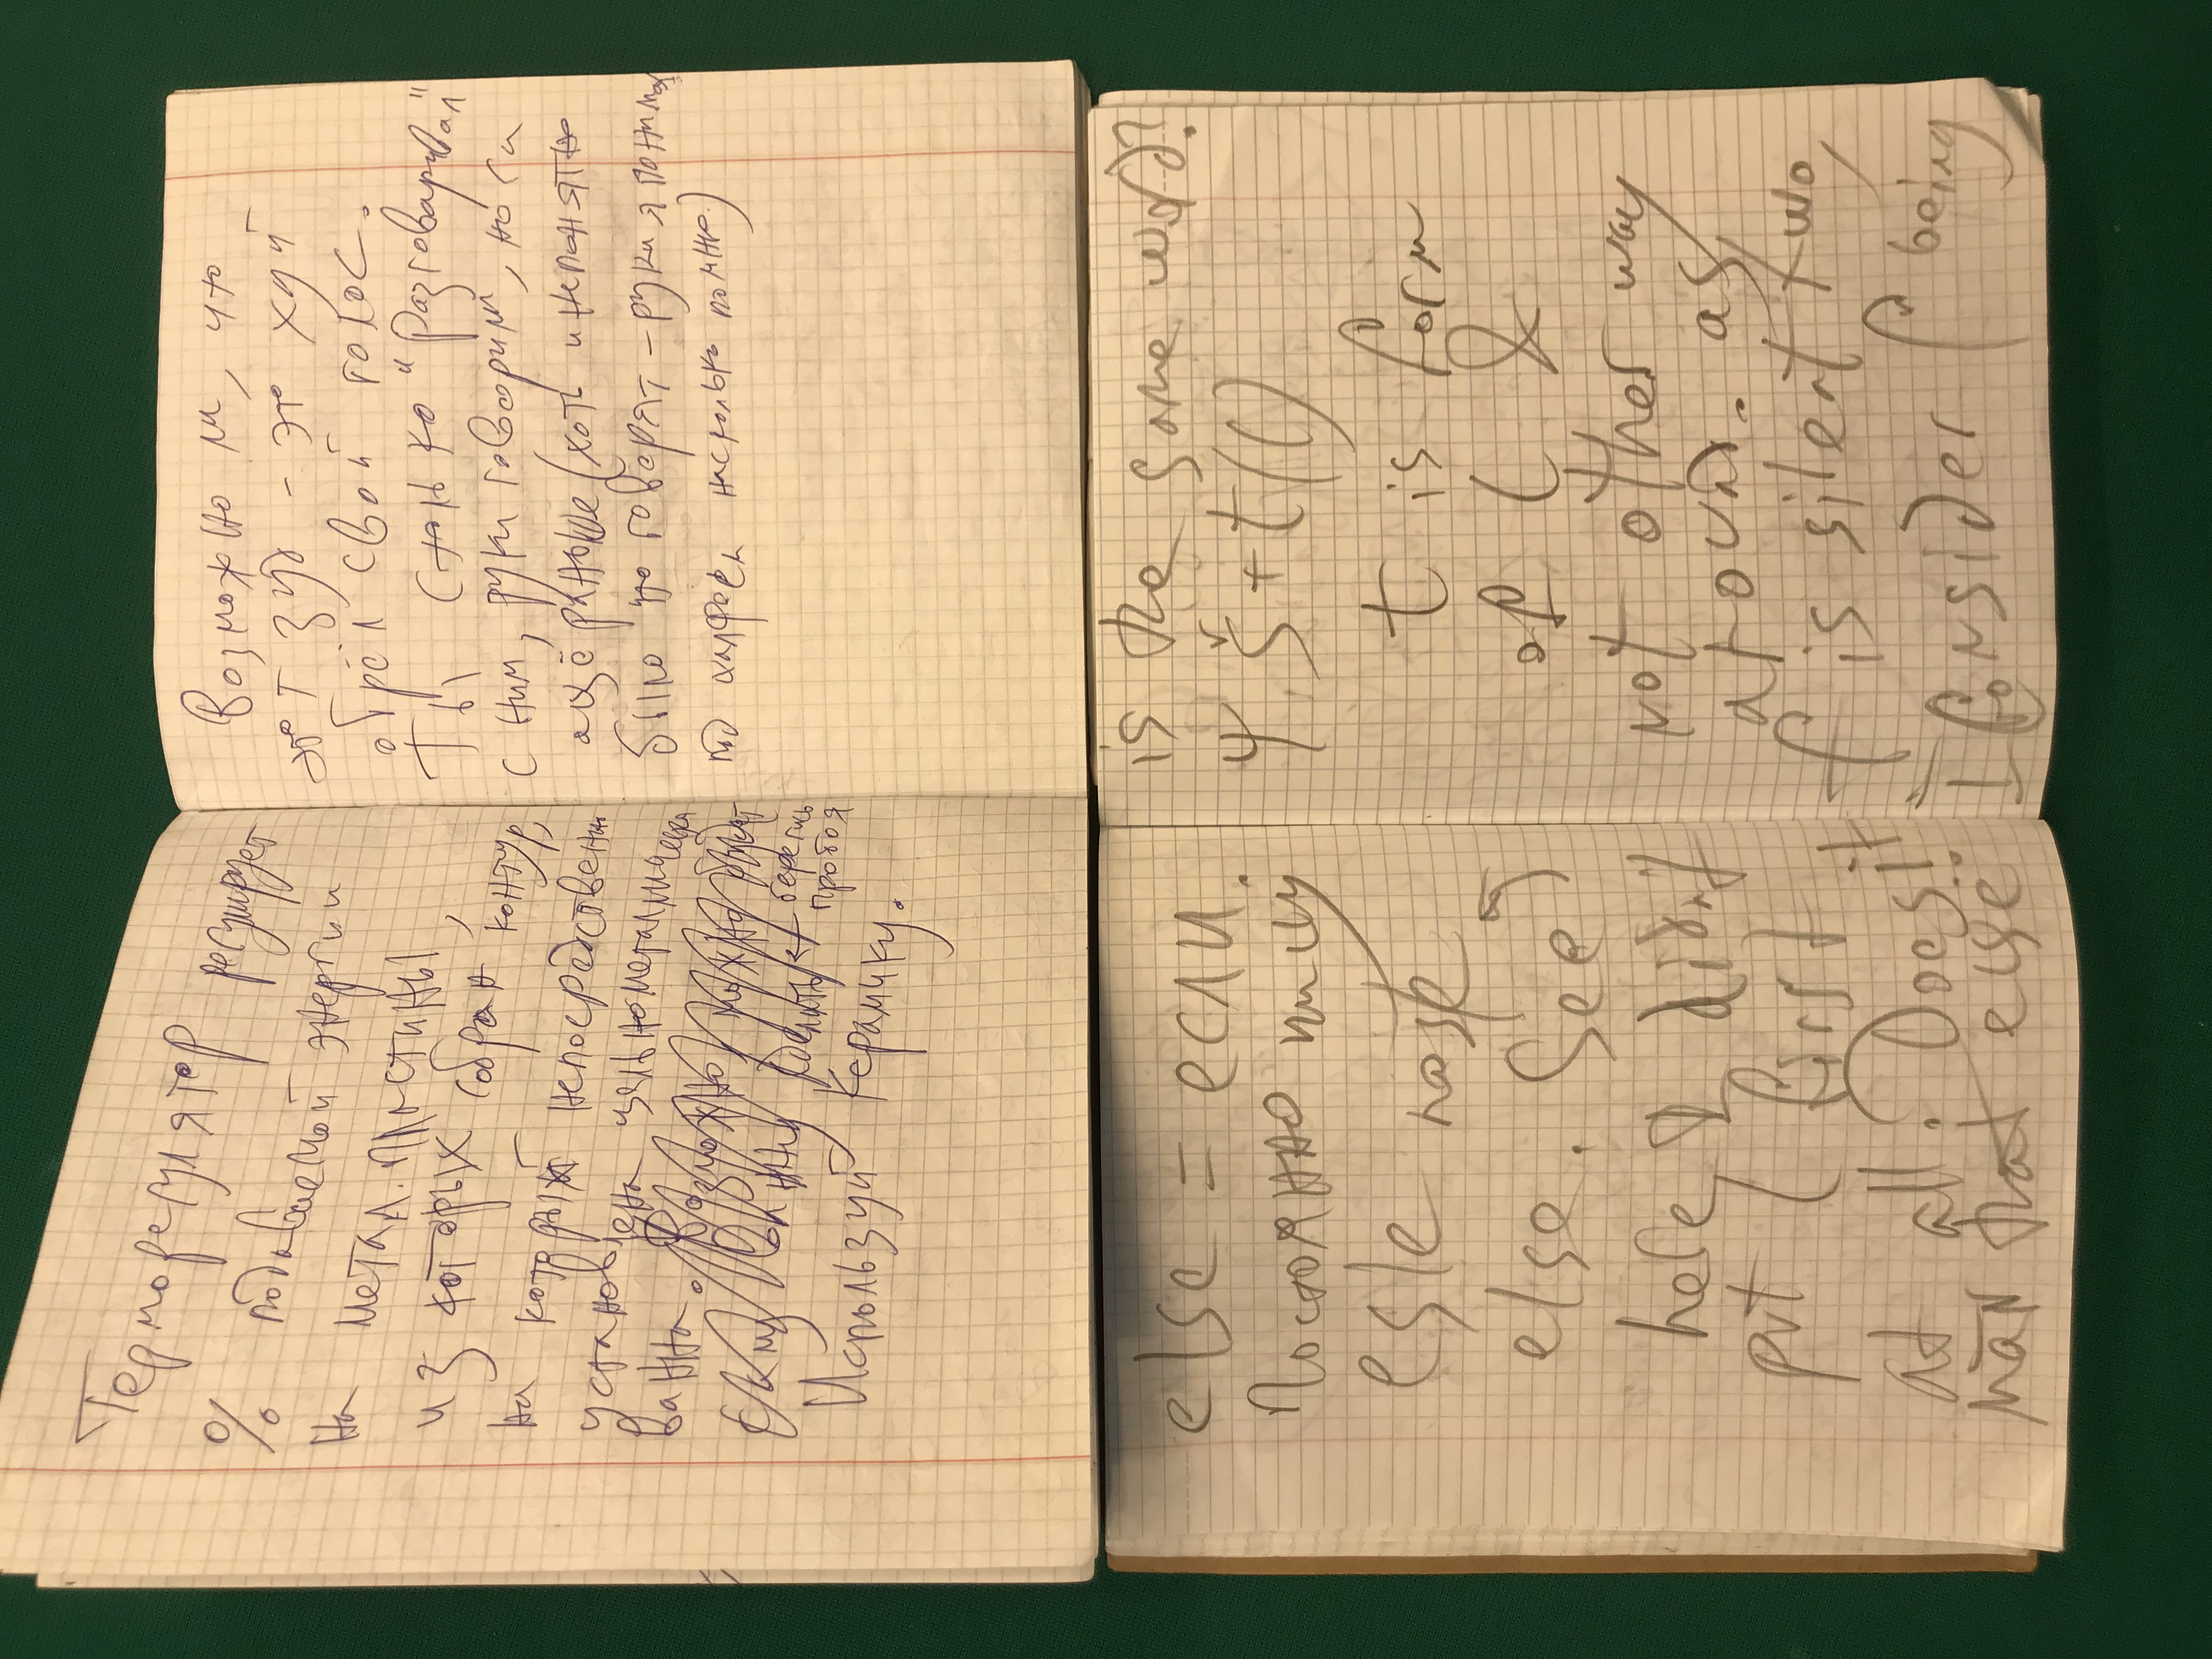 Терморегулятор регулирует
% подаваемой энергии
на метал. пластины,
из которых собран контур,
на который непосредственно
установлена цельнометаллическа
ванна. Возможно можно будет
саму ванну сделать ← берегись
пробоя
Используй керамику.
Возможно ли, что
этот зуд - это хуй
обрёл свой голос.
Ты столько "разговаривал"
с ним, руки говорили, ноги
ещё раньше (хоть и непонятно
было что говорят - руки я понимал
под халфеем настолько помню.)
else = если.
Постоянно пишу
esle nose
else. See
here, I didnt
put ( first
at all. Does it
man that else
is the same word?
Ч š+t/()
t is form
of ( &
not other way
around. as
f is silent two,
I consider f being